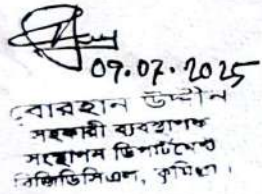 09.07.2025
বোরহান উদ্দীন
সহকারী ব্যবস্থাপক
সংস্থাপন ডিপার্টমেন্ট
বিজিডিসিএল, কুমিল্লা।